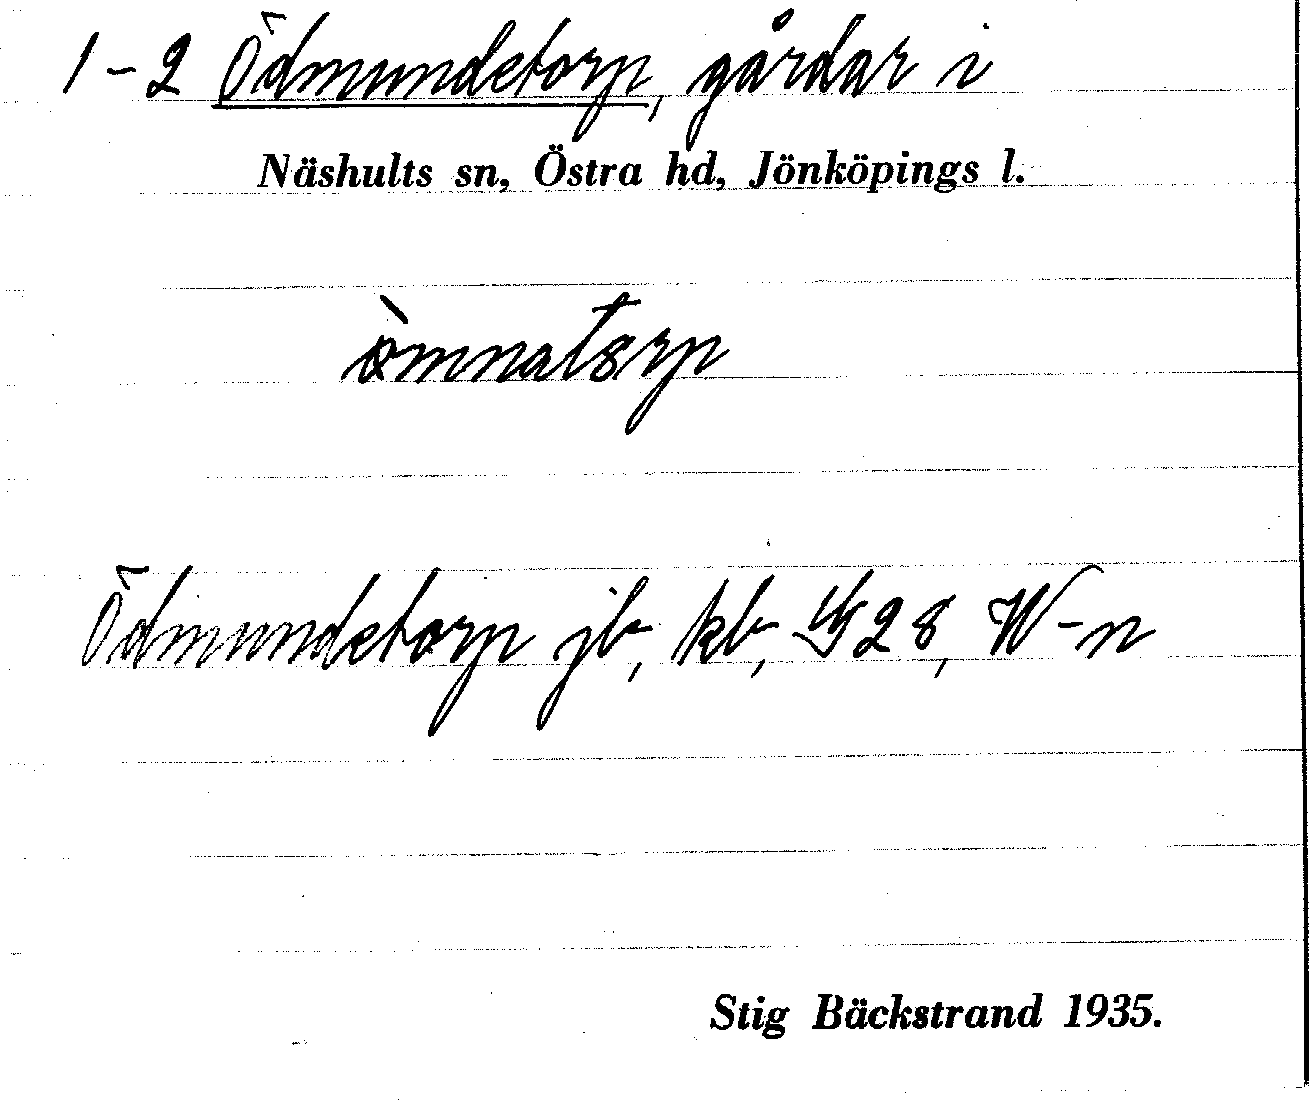 1-2 Ödmundetorp, gårdar i
Näshults sn, Östra hd, Jönköpings l.
Ödmundetorp jb, kb, 28, W-n
Stig Bäckstrand 1935.